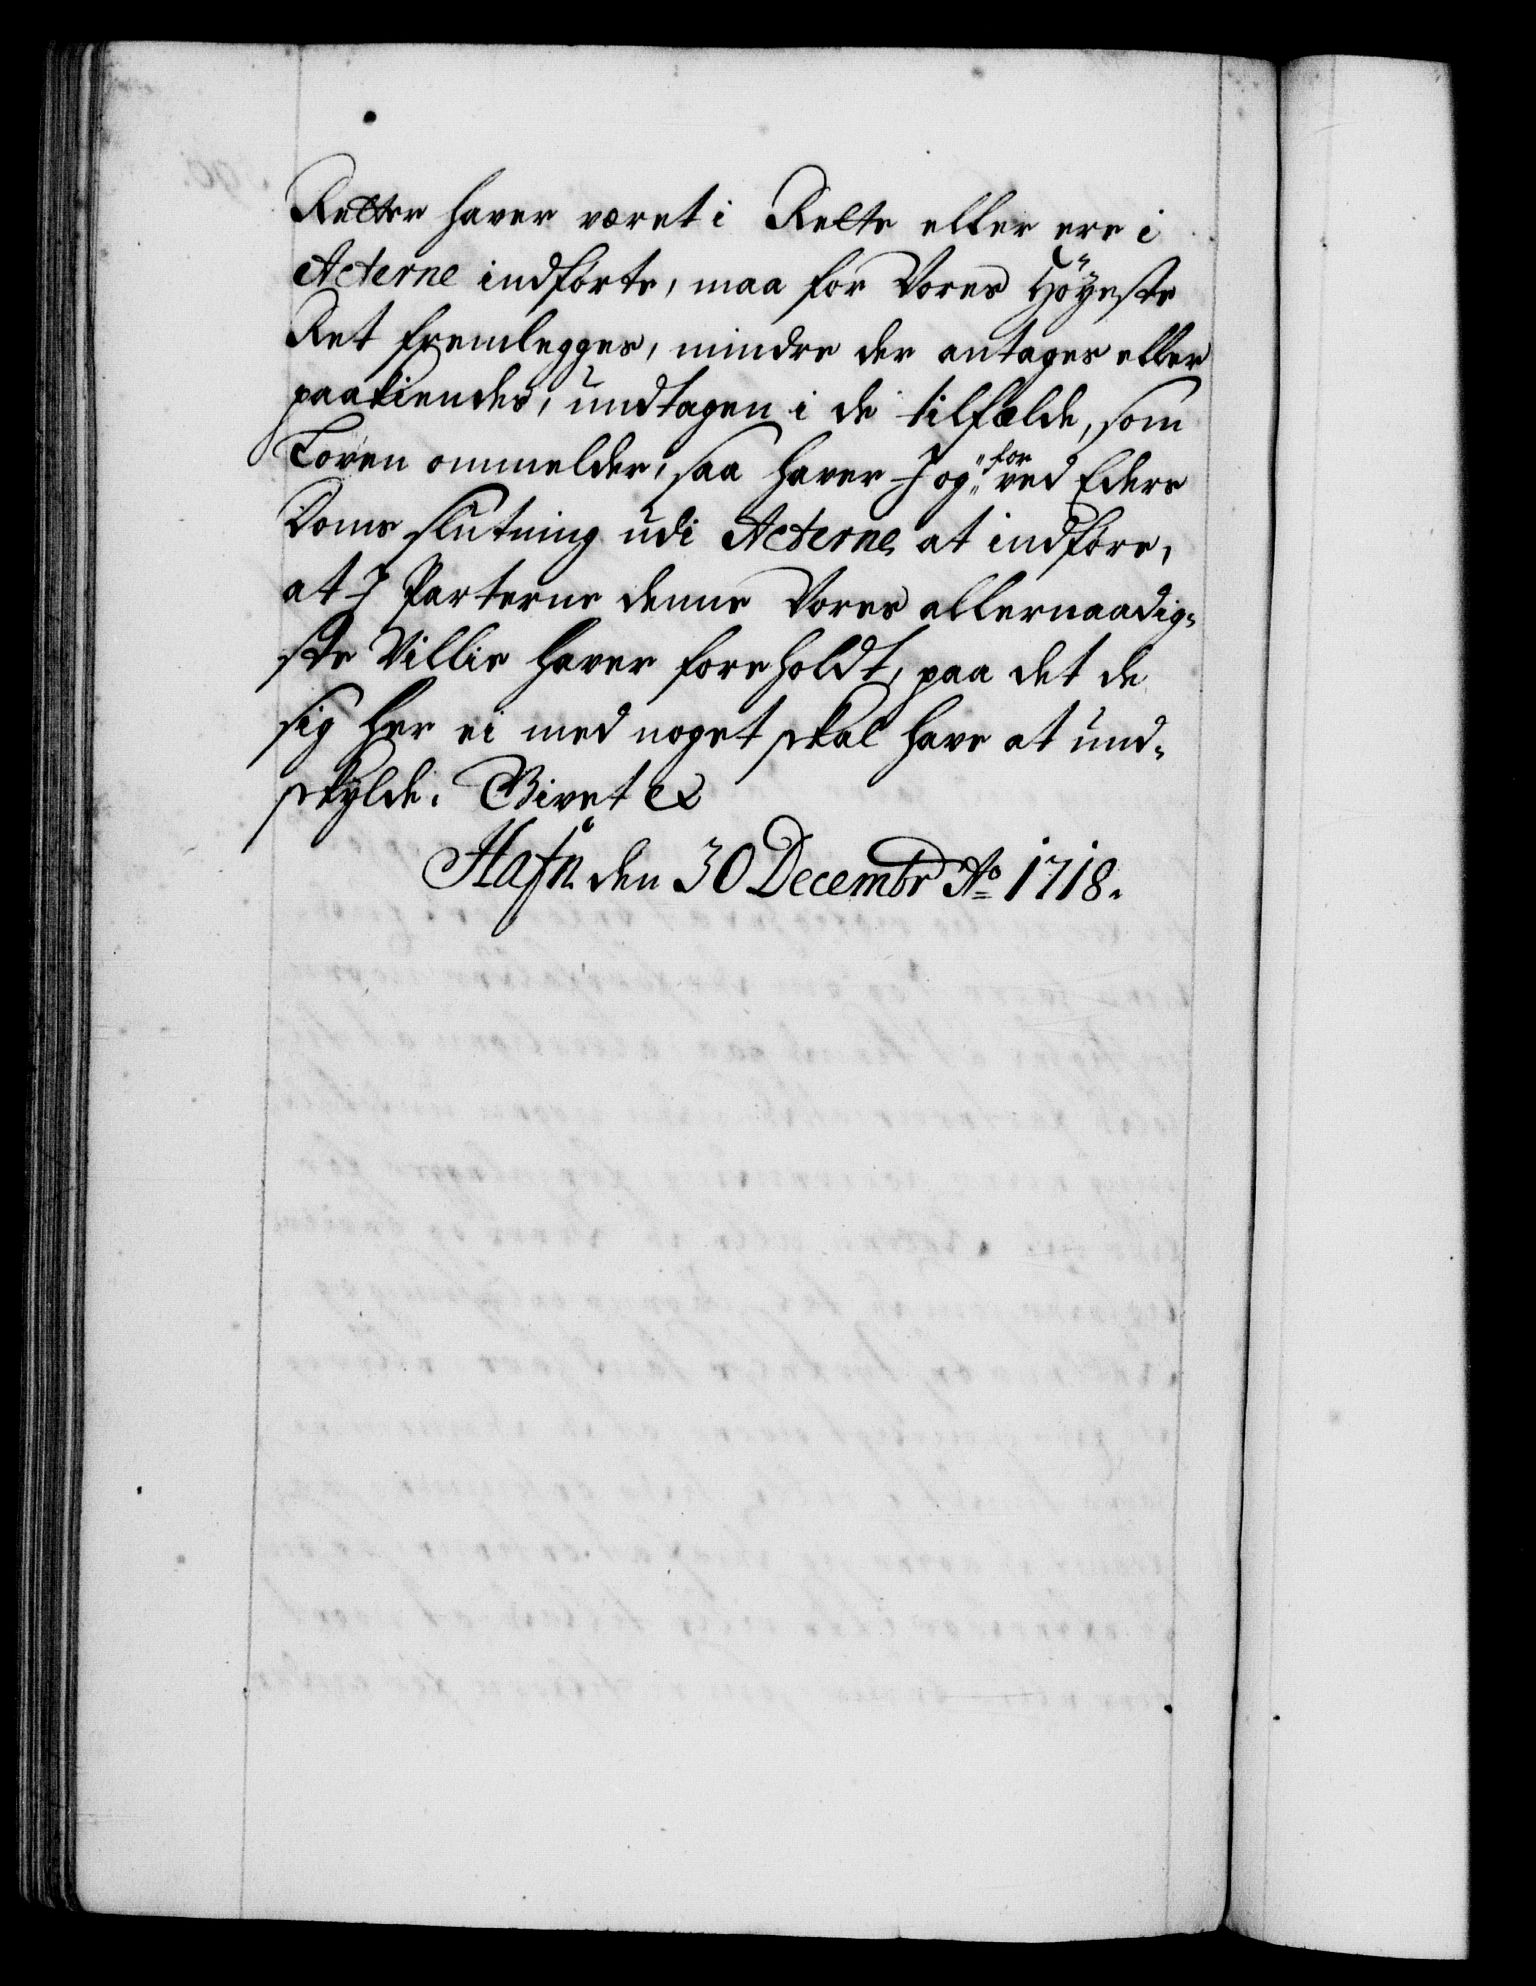 Retter haver været i Rette eller ere i
Acterne indförte, maa for Vores Höÿeste
Ret fremlegges, mindre der antages eller
paakiendes, undtagen i de tilfælde, som
Loven ommelder, saa haver I og "for" ved Eders
Doms slutning udi Acterne at indföre,
at I Parterne denne Vores allernaadig-
ste Villie haver foreholdt, paa det de
sig her ei med noget skal have at und-
skylde. Givet &
Hafn. den 30 Decembr Ao 1718.